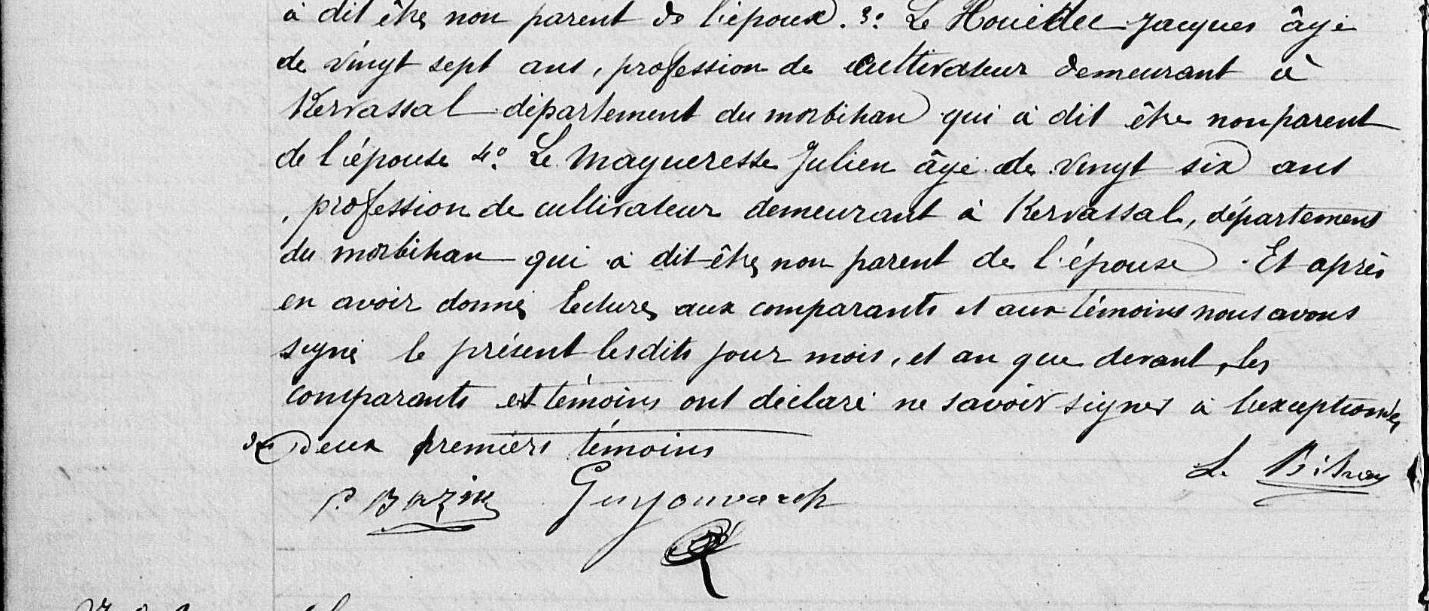 à dit être non parent de l'époux. 3o Le Houédec Jacques âgé
de vingt sept ans, profession de cultivateur demeurant à
Kervassal département du morbihan qui à dit être non parent
de l'épouse 4o Le Magueresse Julien âgé de vingt six ans
, profession de cultivateur demeurant à Kervassal, département
du morbihan qui à dit être non parent de l'épouse. Et après
en avoir donné lecture aux comparants et aux témoins nous avons
signé le présent lesdits jour mois, et an que devant, les
comparants et témoins ont déclaré ne savoir signer à l'exception des
deux premiers témoins
P. Bazin Guyonvarch
Le